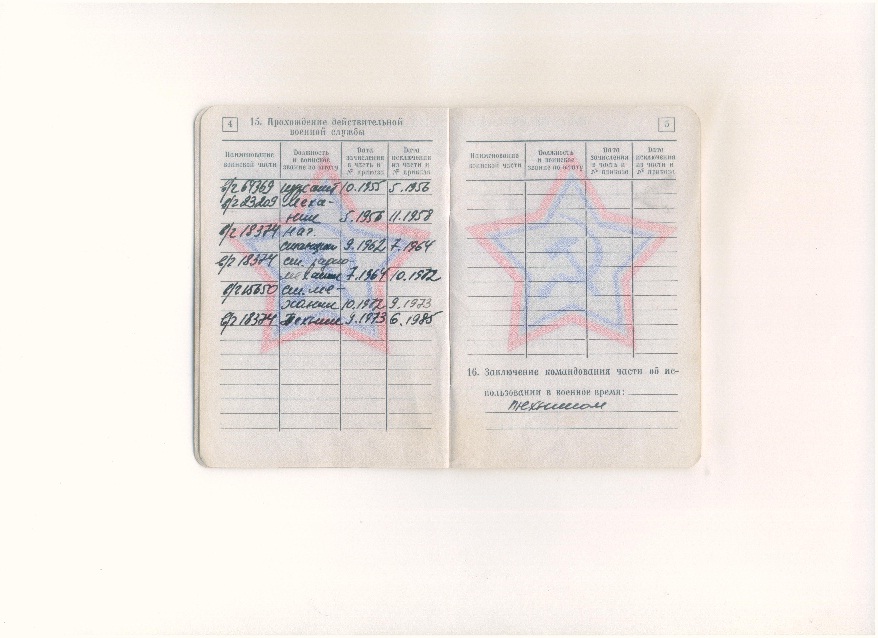 4 15. Прохождение действительной
военной службы
Наименование воинской части
Должность и воинское звание по штату
Дата зачисления в часть и № приказа
Дата исключения из части и № приказа
в/ч 67969 курсант 10.1955 5.1956
в/ч 23209 Меха-
ник 5.1956 11.1958
в/ч 18374 нач.
станции 9.1962 7.1964
в/ч 18374 ст. радио-
механик 7.1964 10.1972
в/ч 15650 ст. ме-
ханик 10.1972 9.1973
в/ч 18374 Техник 9.1973 6.1985
5
Наименование воинской части
Должность и воинское звание по штату
Дата зачисления в часть и № приказа
Дата исключения из части и № приказа
16. Заключение командования части об ис-
пользовании в военное время:
техником